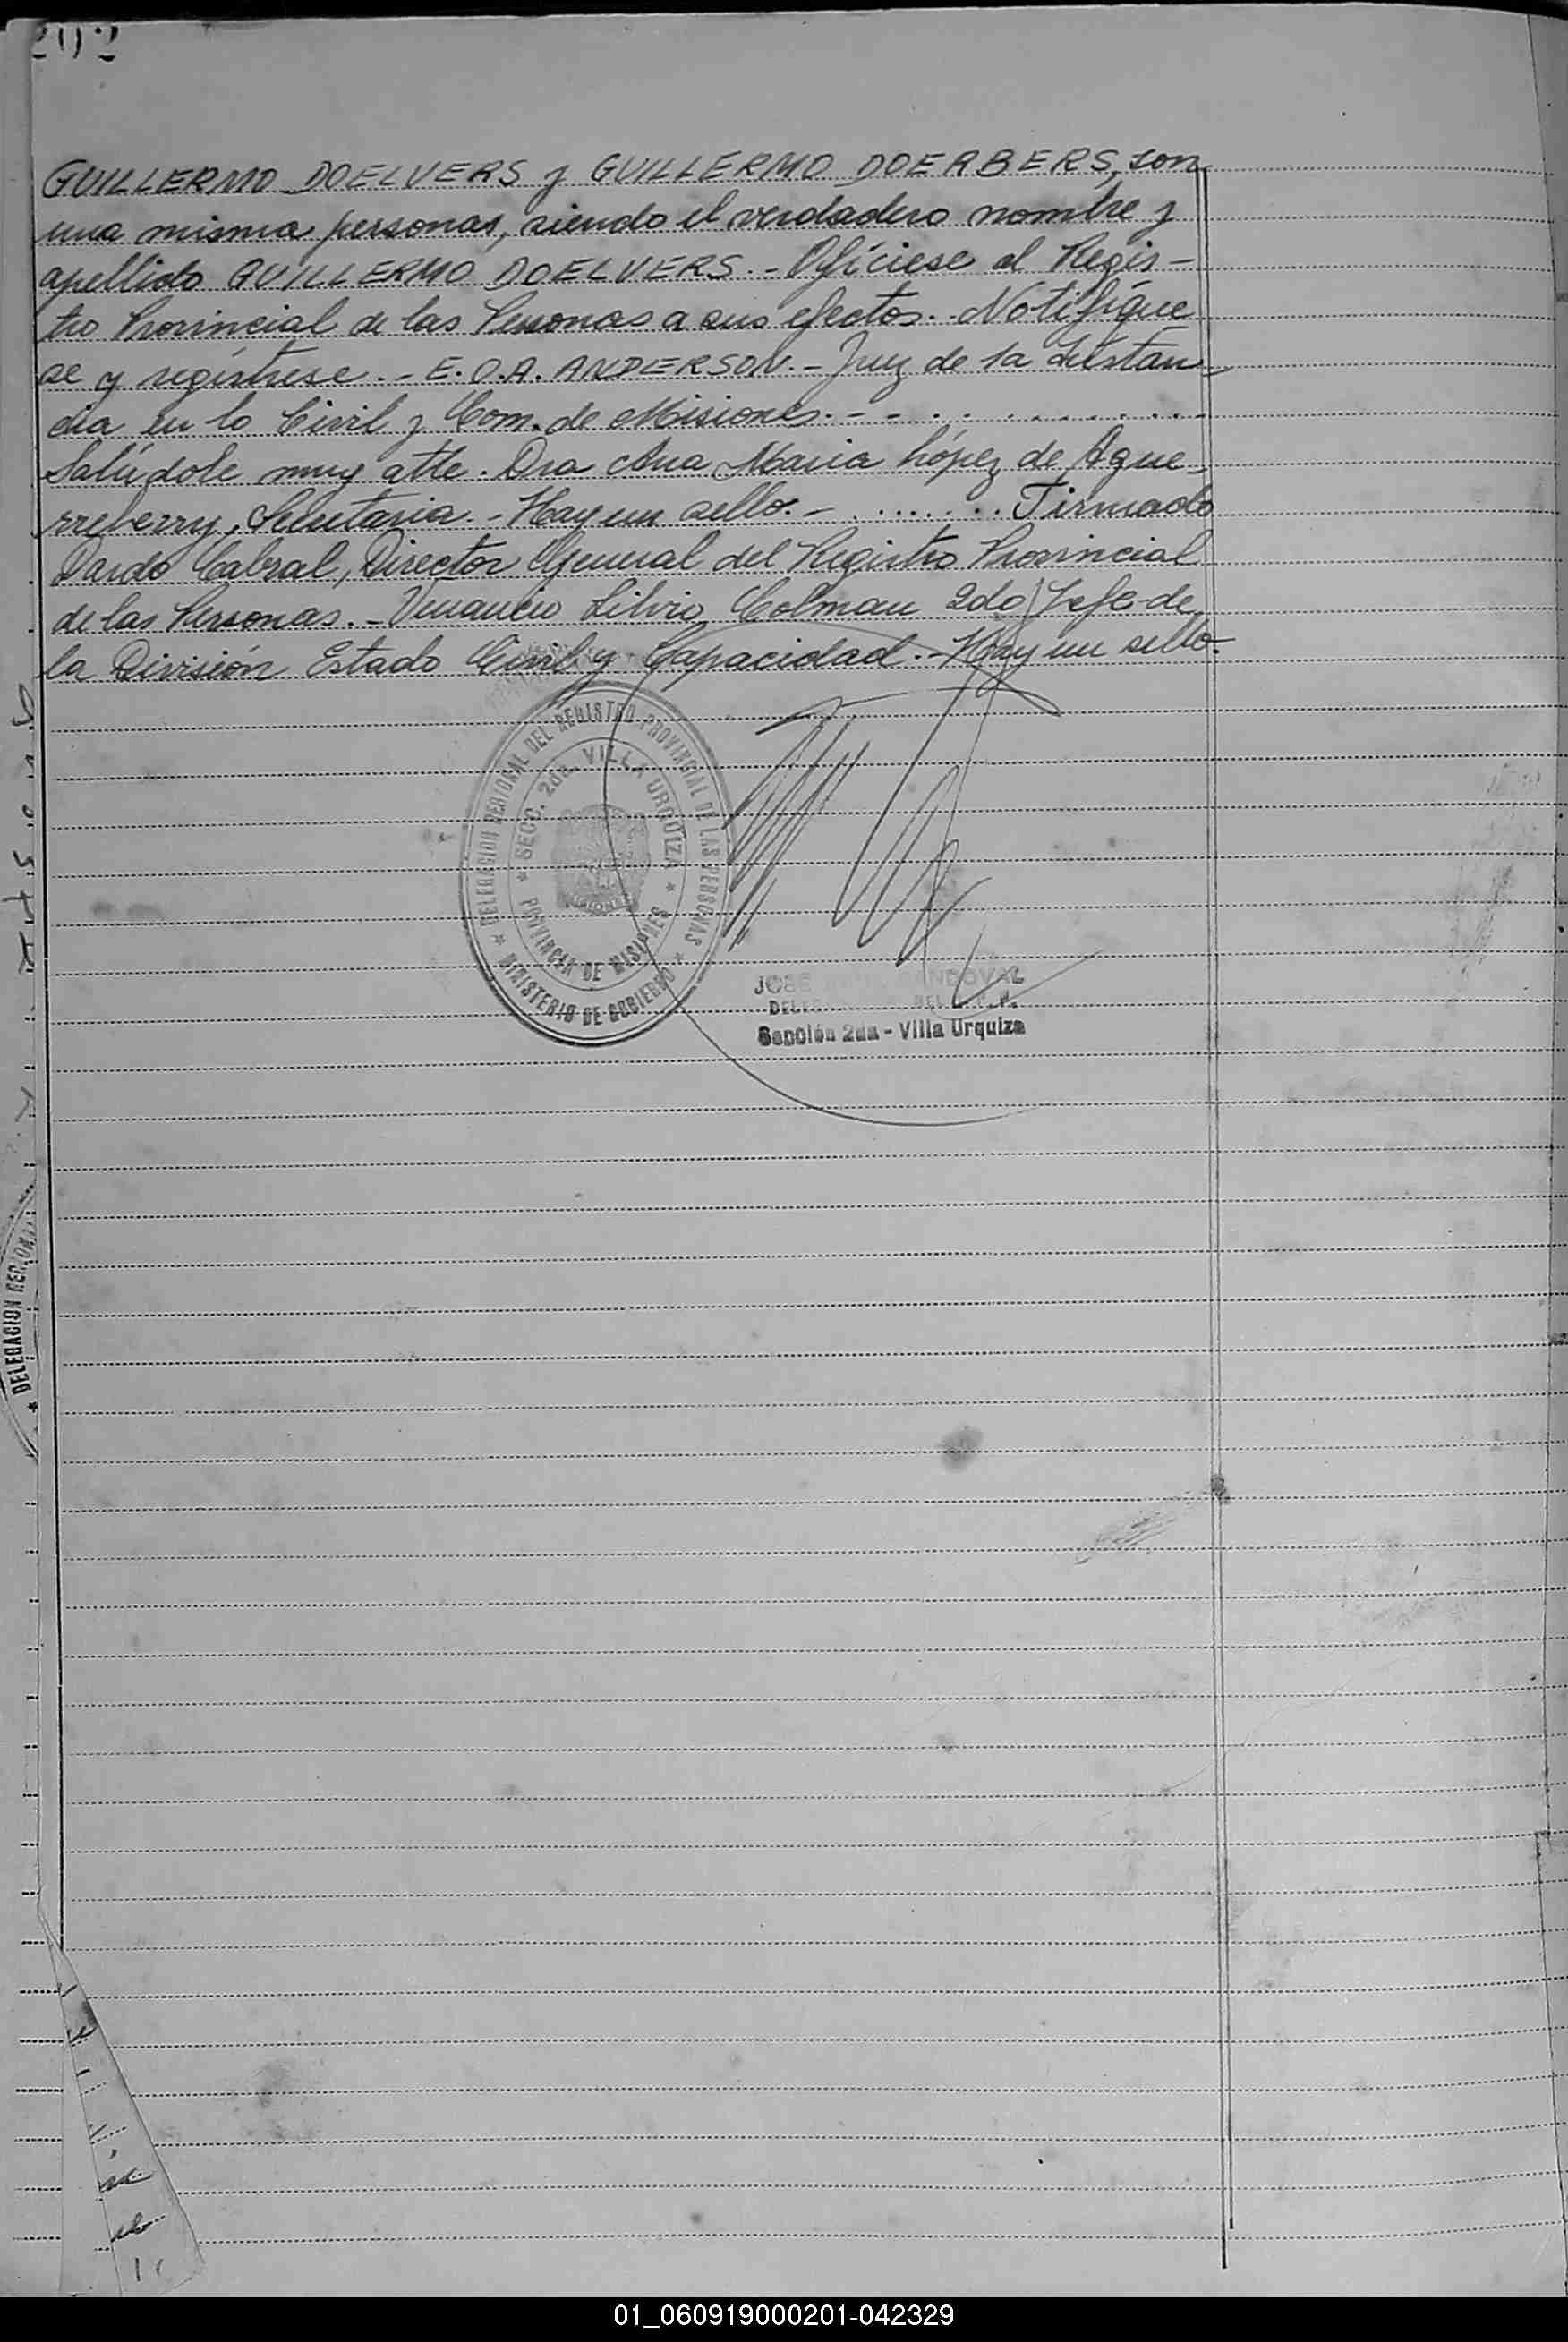 202
GUILLERMO DOELVERS y GUILLERMO DOERBERS, son
una misma personas, siendo el verdadero nombre y
apellido GUILLERMO DOELVERS.- Ofíciese al Regis-
tro Provincial de las Personas a sus efectos.- Notifíque
se y regístrese.- E.O.A. ANDERSON.- Juez de 1a Instan-
cia en lo Civil y Com. de Misiones.- - . . . . . . . .
Salúdole muy atte. Dra Ana Maria López de Ague-
rreberry, Secretaria.- Hay un sello.- . . . . . . . Firmado
Dardo Cabral, Director General del Registro Provincial
de las Personas.- Venancio Silvio Colman 2do Jefe de
la División Estado Civil y Capacidad.- Hay un sello.
DELEGACION REGIONAL DEL REGISTRO PROVINCIAL DE LAS PERSONAS
* MINISTERIO DE GOBIERNO *
* SECC. 2da. VILLA URQUIZA *
PROVINCIA DE MISIONES
MISIONES
JOSE SANDOVAL
DEL
Sección 2da - Villa Urquiza
* DELEGACION REGIONAL
01_060919000201-042329